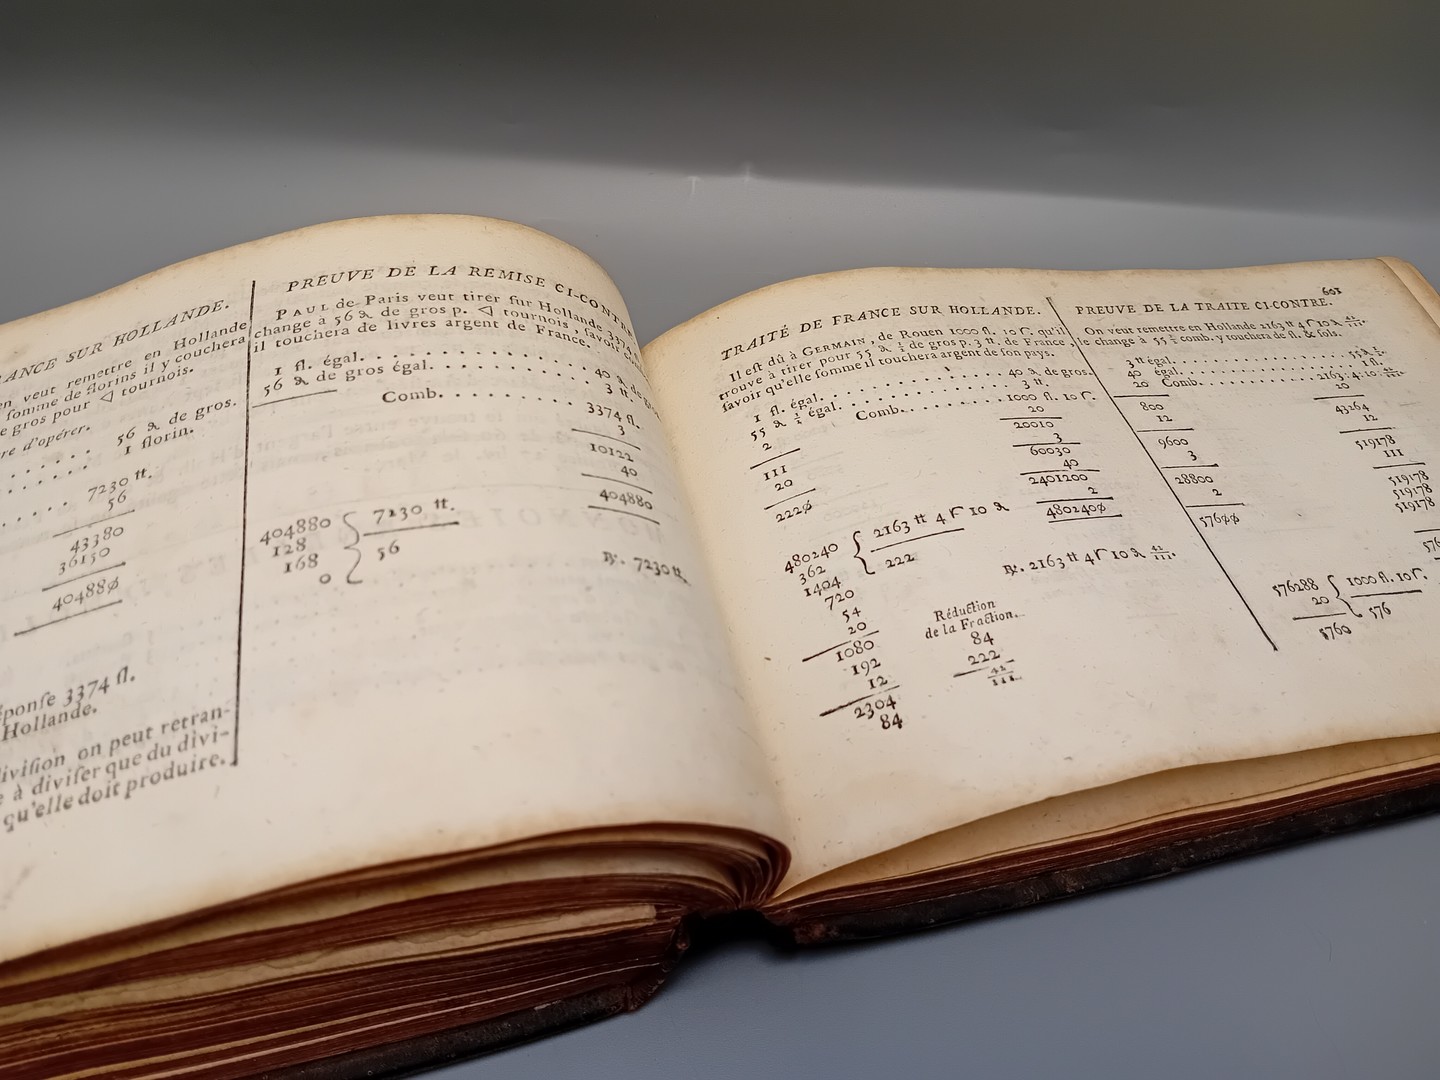 ANCE SUR HOLLANDE.
en veut remettre en Hollande
somme de florins il y touchera
e gros pour ◁ tournois.
re d'opérer.
56 ₰ de gros.
1 florin.
7230 ₶.
56
43380
36150
404880
éponſe 3374 fl.
Hollande.
diviſion on peut retran-
e à diviſer que du divi-
qu'elle doit produire.
PREUVE DE LA REMISE CI-CONTR
PAUL de Paris veut tirer ſur Hollande 3374
change à 56 ₰ de gros p. ◁ tournois, ſavoir
il touchera de livres argent de France.
1 fl. égal. 40 ₰ de gros
56 ₰ de gros égal. 3 ₶.
Comb. 3374 fl.
3
10122
40
404880
404880 { 7230 ₶.
128
168 56
0
℟. 7230 ₶.
601
TRAITÉ DE FRANCE SUR HOLLANDE.
Il eſt dû à GERMAIN, de Rouen 1000 fl. 10 ſ. qu'il
trouve à tirer pour 55 ₰ ½ de gros p. 3 ₶. de France,
ſavoir qu'elle ſomme il touchera argent de ſon pays.
1 fl. égal. 40 ₰ de gros.
55 ₰ ½ égal. 3 ₶.
2 Comb. 1000 fl. 10 ſ.
111 20
20 20010
2220 3
60030
40
2401200
2
4802400
480240 { 2163 ₶ 4 ſ 10 ₰
362
1404 222
720
54
20
1080
192
12
2304
84
℟. 2163 ₶ 4 ſ 10 ₰ 42/111.
Réduction
de la Fraction.
84
222
42
111
PREUVE DE LA TRAITE CI-CONTRE.
On veut remettre en Hollande 2163 ₶ 4 ſ 10 ₰ 42/111.
le change à 55 ½ comb. y touchera de fl. & ſols.
3 ₶ égal. 55 ₰ ½.
40 égal. 1 fl.
20 Comb. 2163. 4. 10. 42/111.
800 20
12 43264
9600 12
3 519178
28800 111
2 519178
57600 519178
519178
576
576288 { 1000 fl. 10 ſ.
20 576
5760